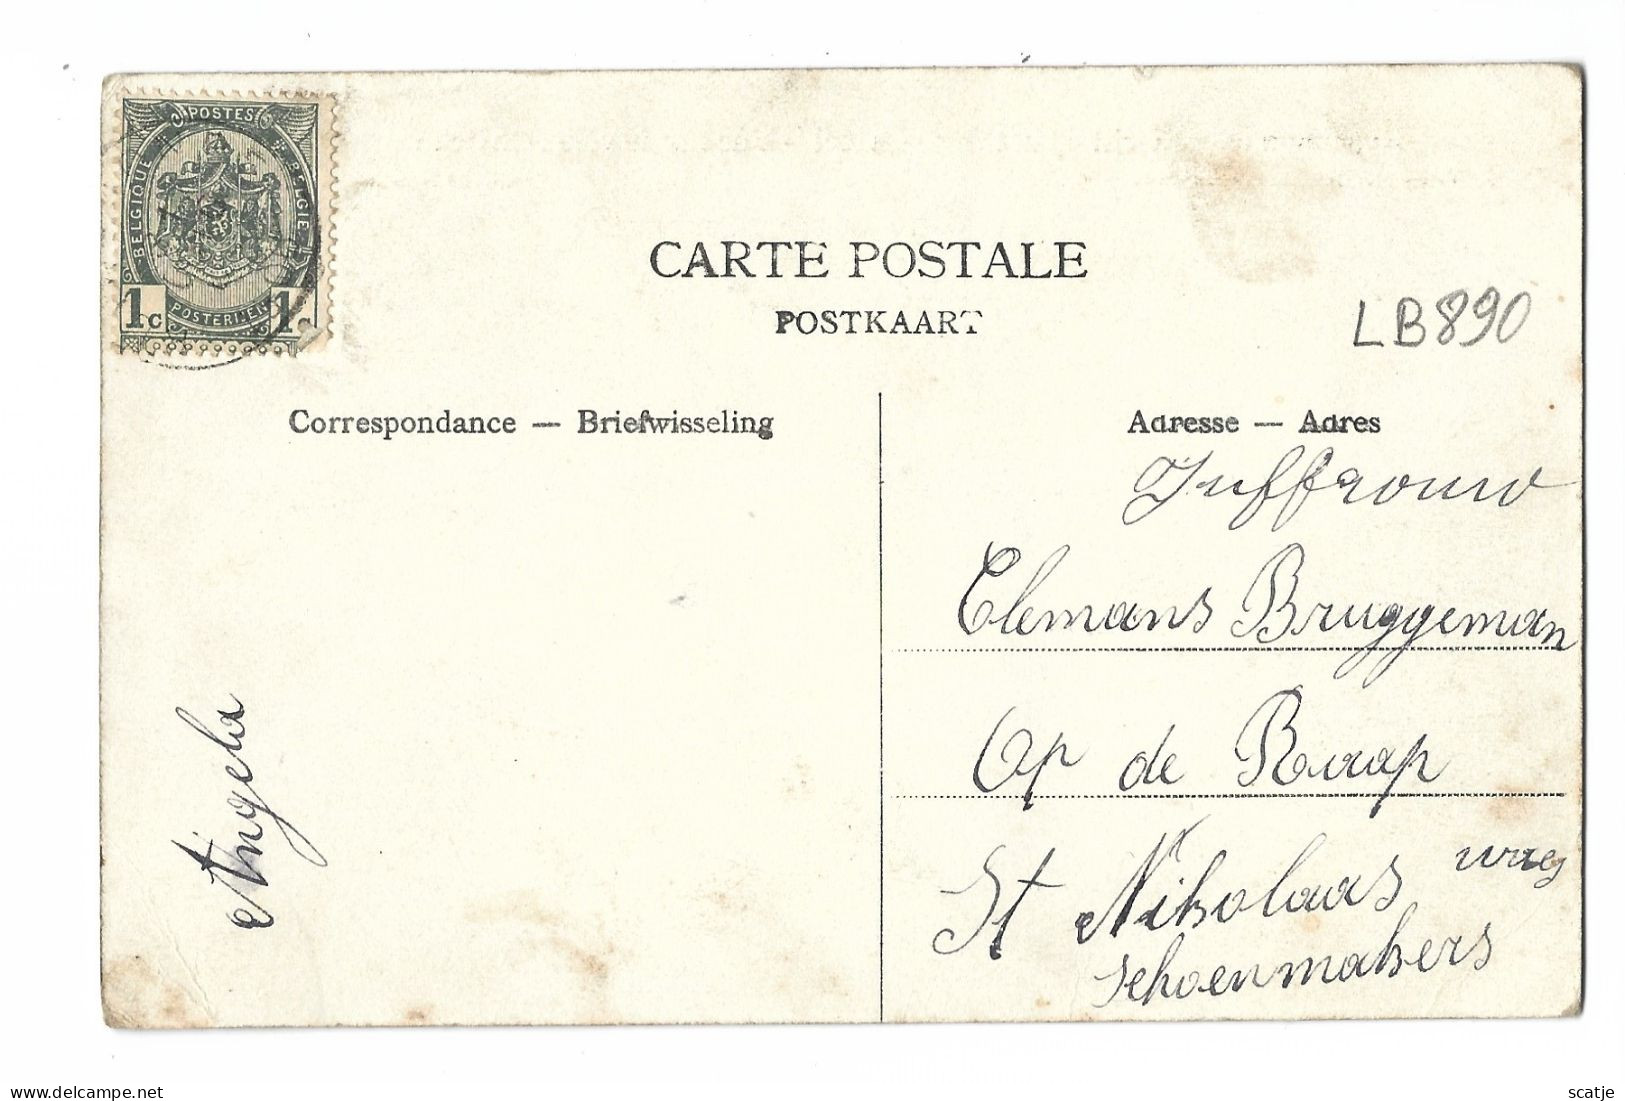 POSTES
BELGIQUE
BELGIE
1c
POSTERIJEN
1c
CARTE POSTALE
POSTKAART
LB890
Correspondance — Briefwisseling
Adresse — Adres
Juffrouw
Clemans Bruggeman
Op de Raap
St Nikolaas waes
Schoenmakers
Angela
delcampe.net
scatje